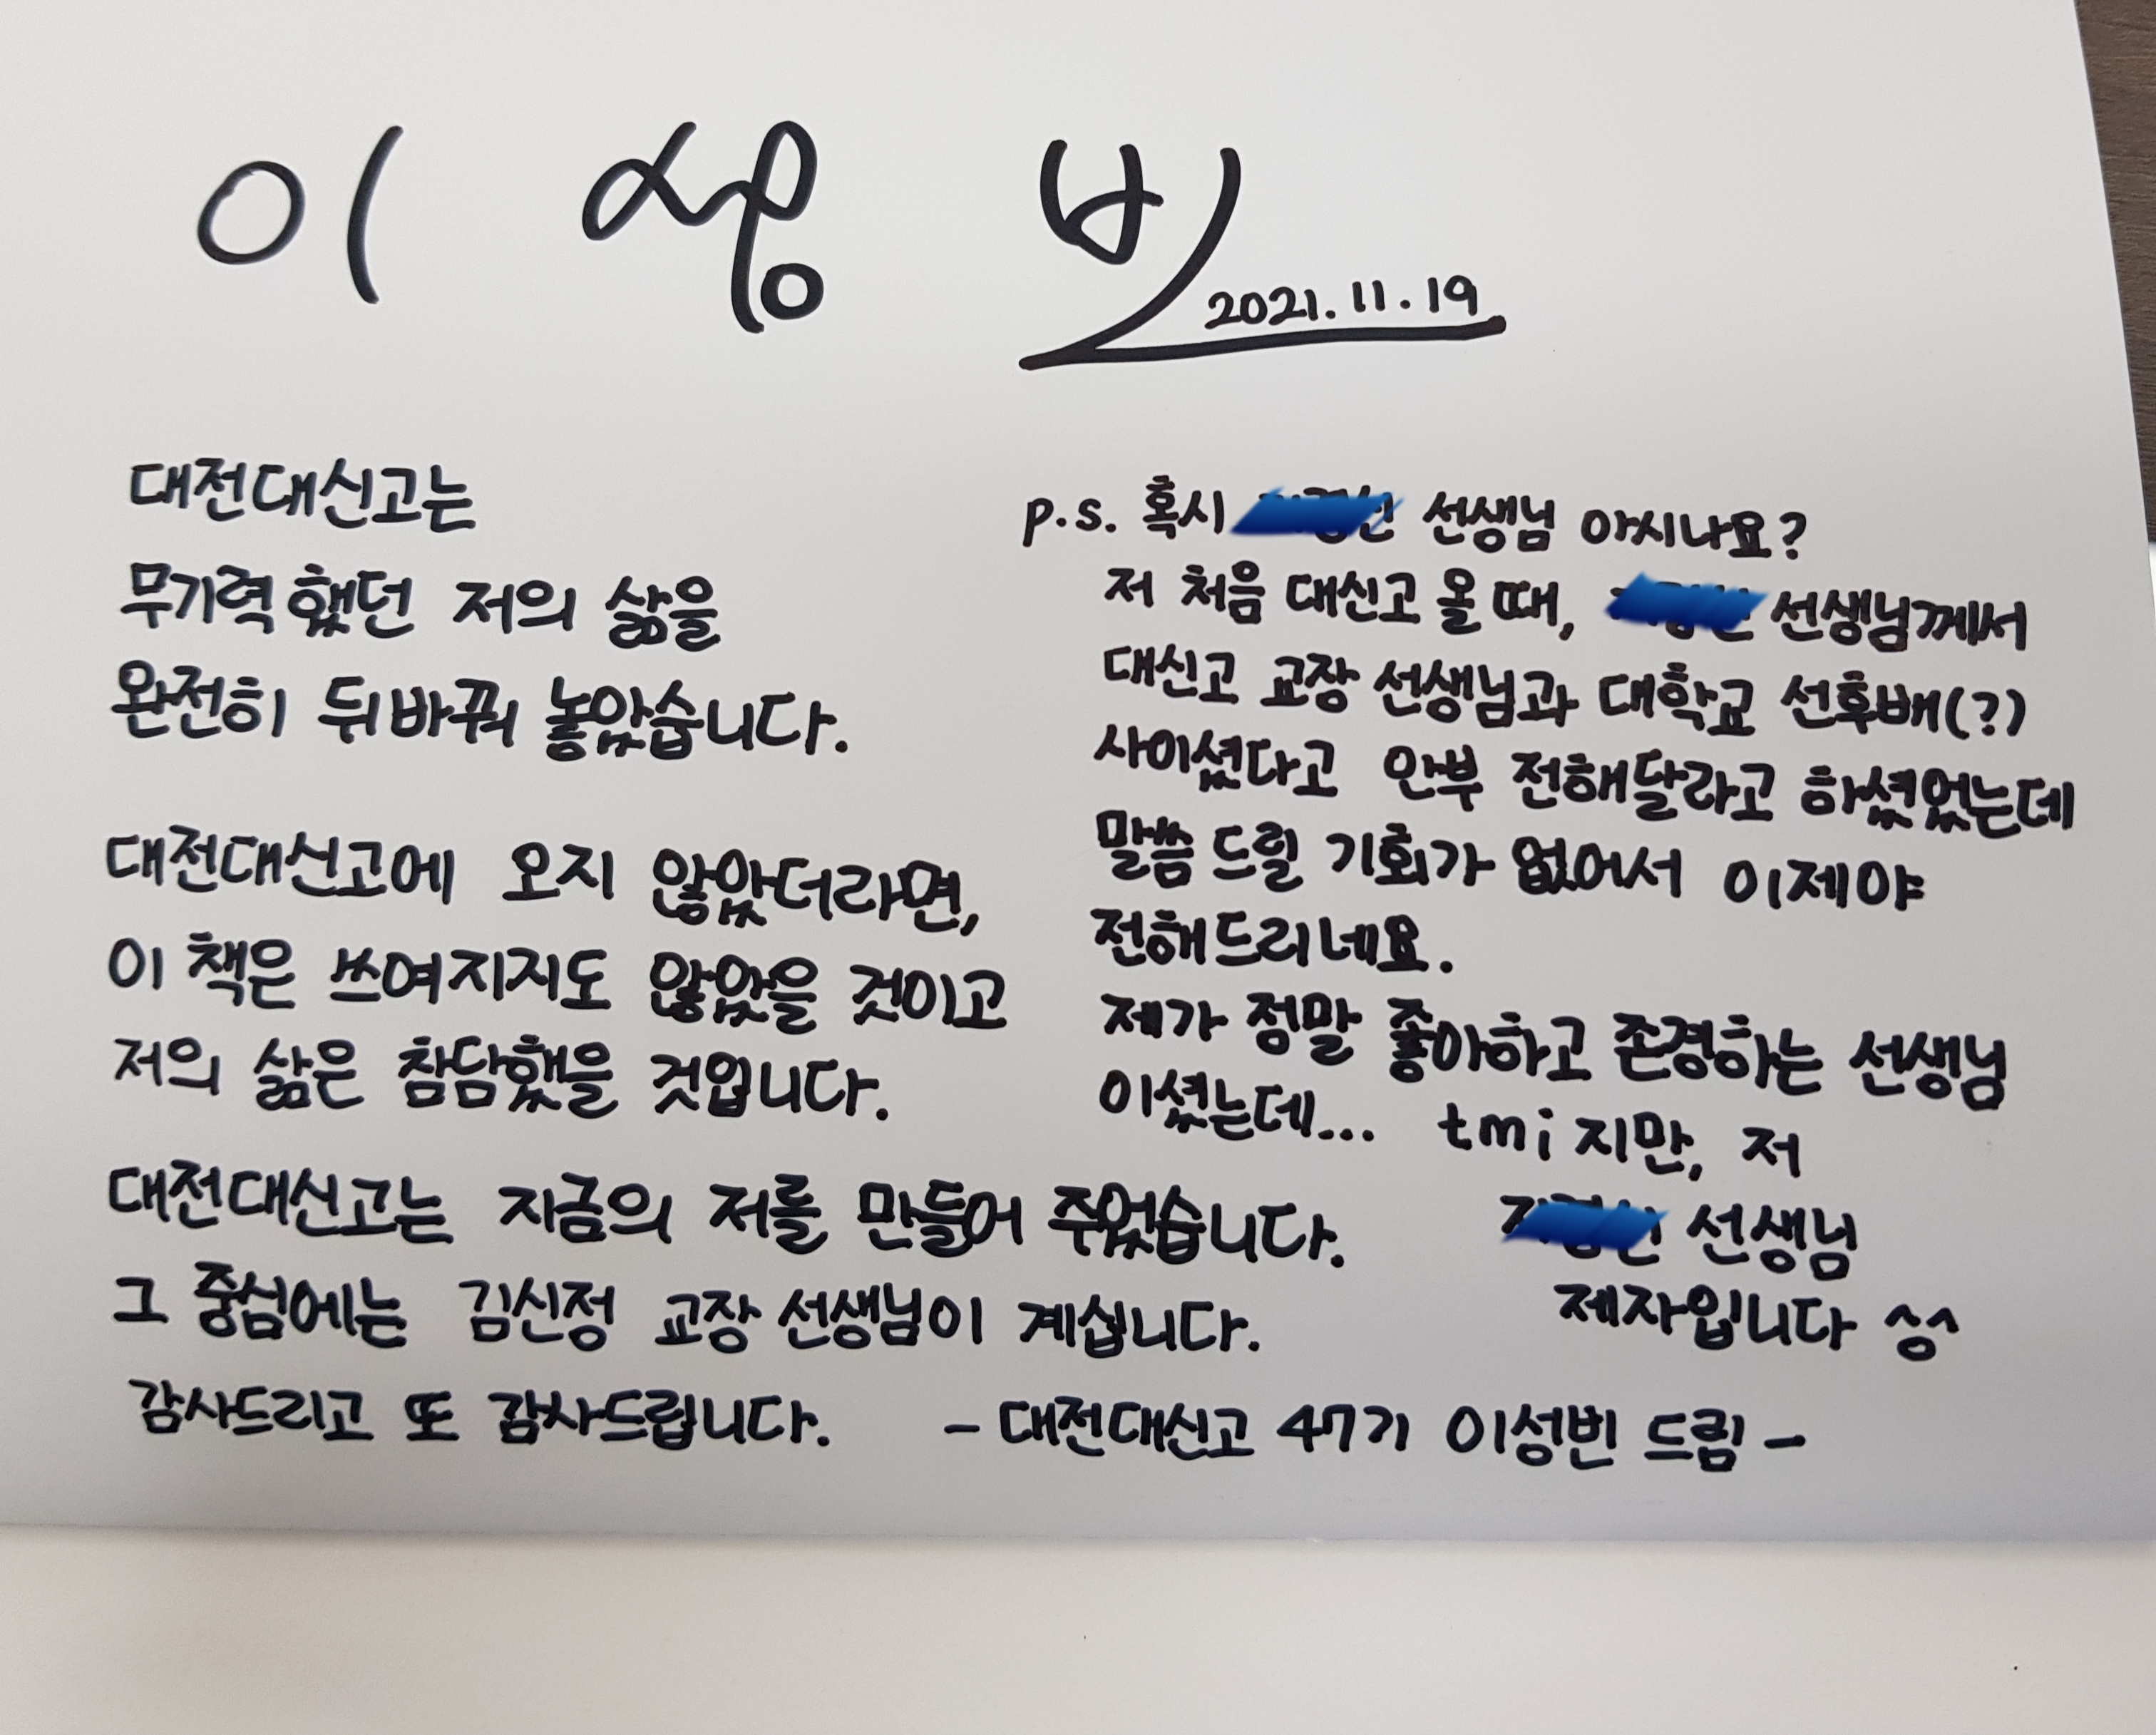 이성빈
2021.11.19
대전대신고는
무기력했던 저의 삶을
완전히 뒤바꿔 놓았습니다.
대전대신고에 오지 않았더라면,
이 책은 쓰여지지도 않았을 것이고
저의 삶은 참담했을 것입니다.
대전대신고는 지금의 저를 만들어 주었습니다.
그 중심에는 김신정 교장 선생님이 계십니다.
감사드리고 또 감사드립니다.
p.s. 혹시 선생님 아시나요?
저 처음 대신고 올 때, 선생님께서
대신고 교장 선생님과 대학교 선후배(?)
사이셨다고 안부 전해달라고 하셨었는데
말씀 드릴 기회가 없어서 이제야
전해드리네요.
제가 정말 좋아하고 존경하는 선생님
이셨는데... tmi 지만, 저
선생님
제자입니다 ^^
- 대전대신고 47기 이성빈 드림 -